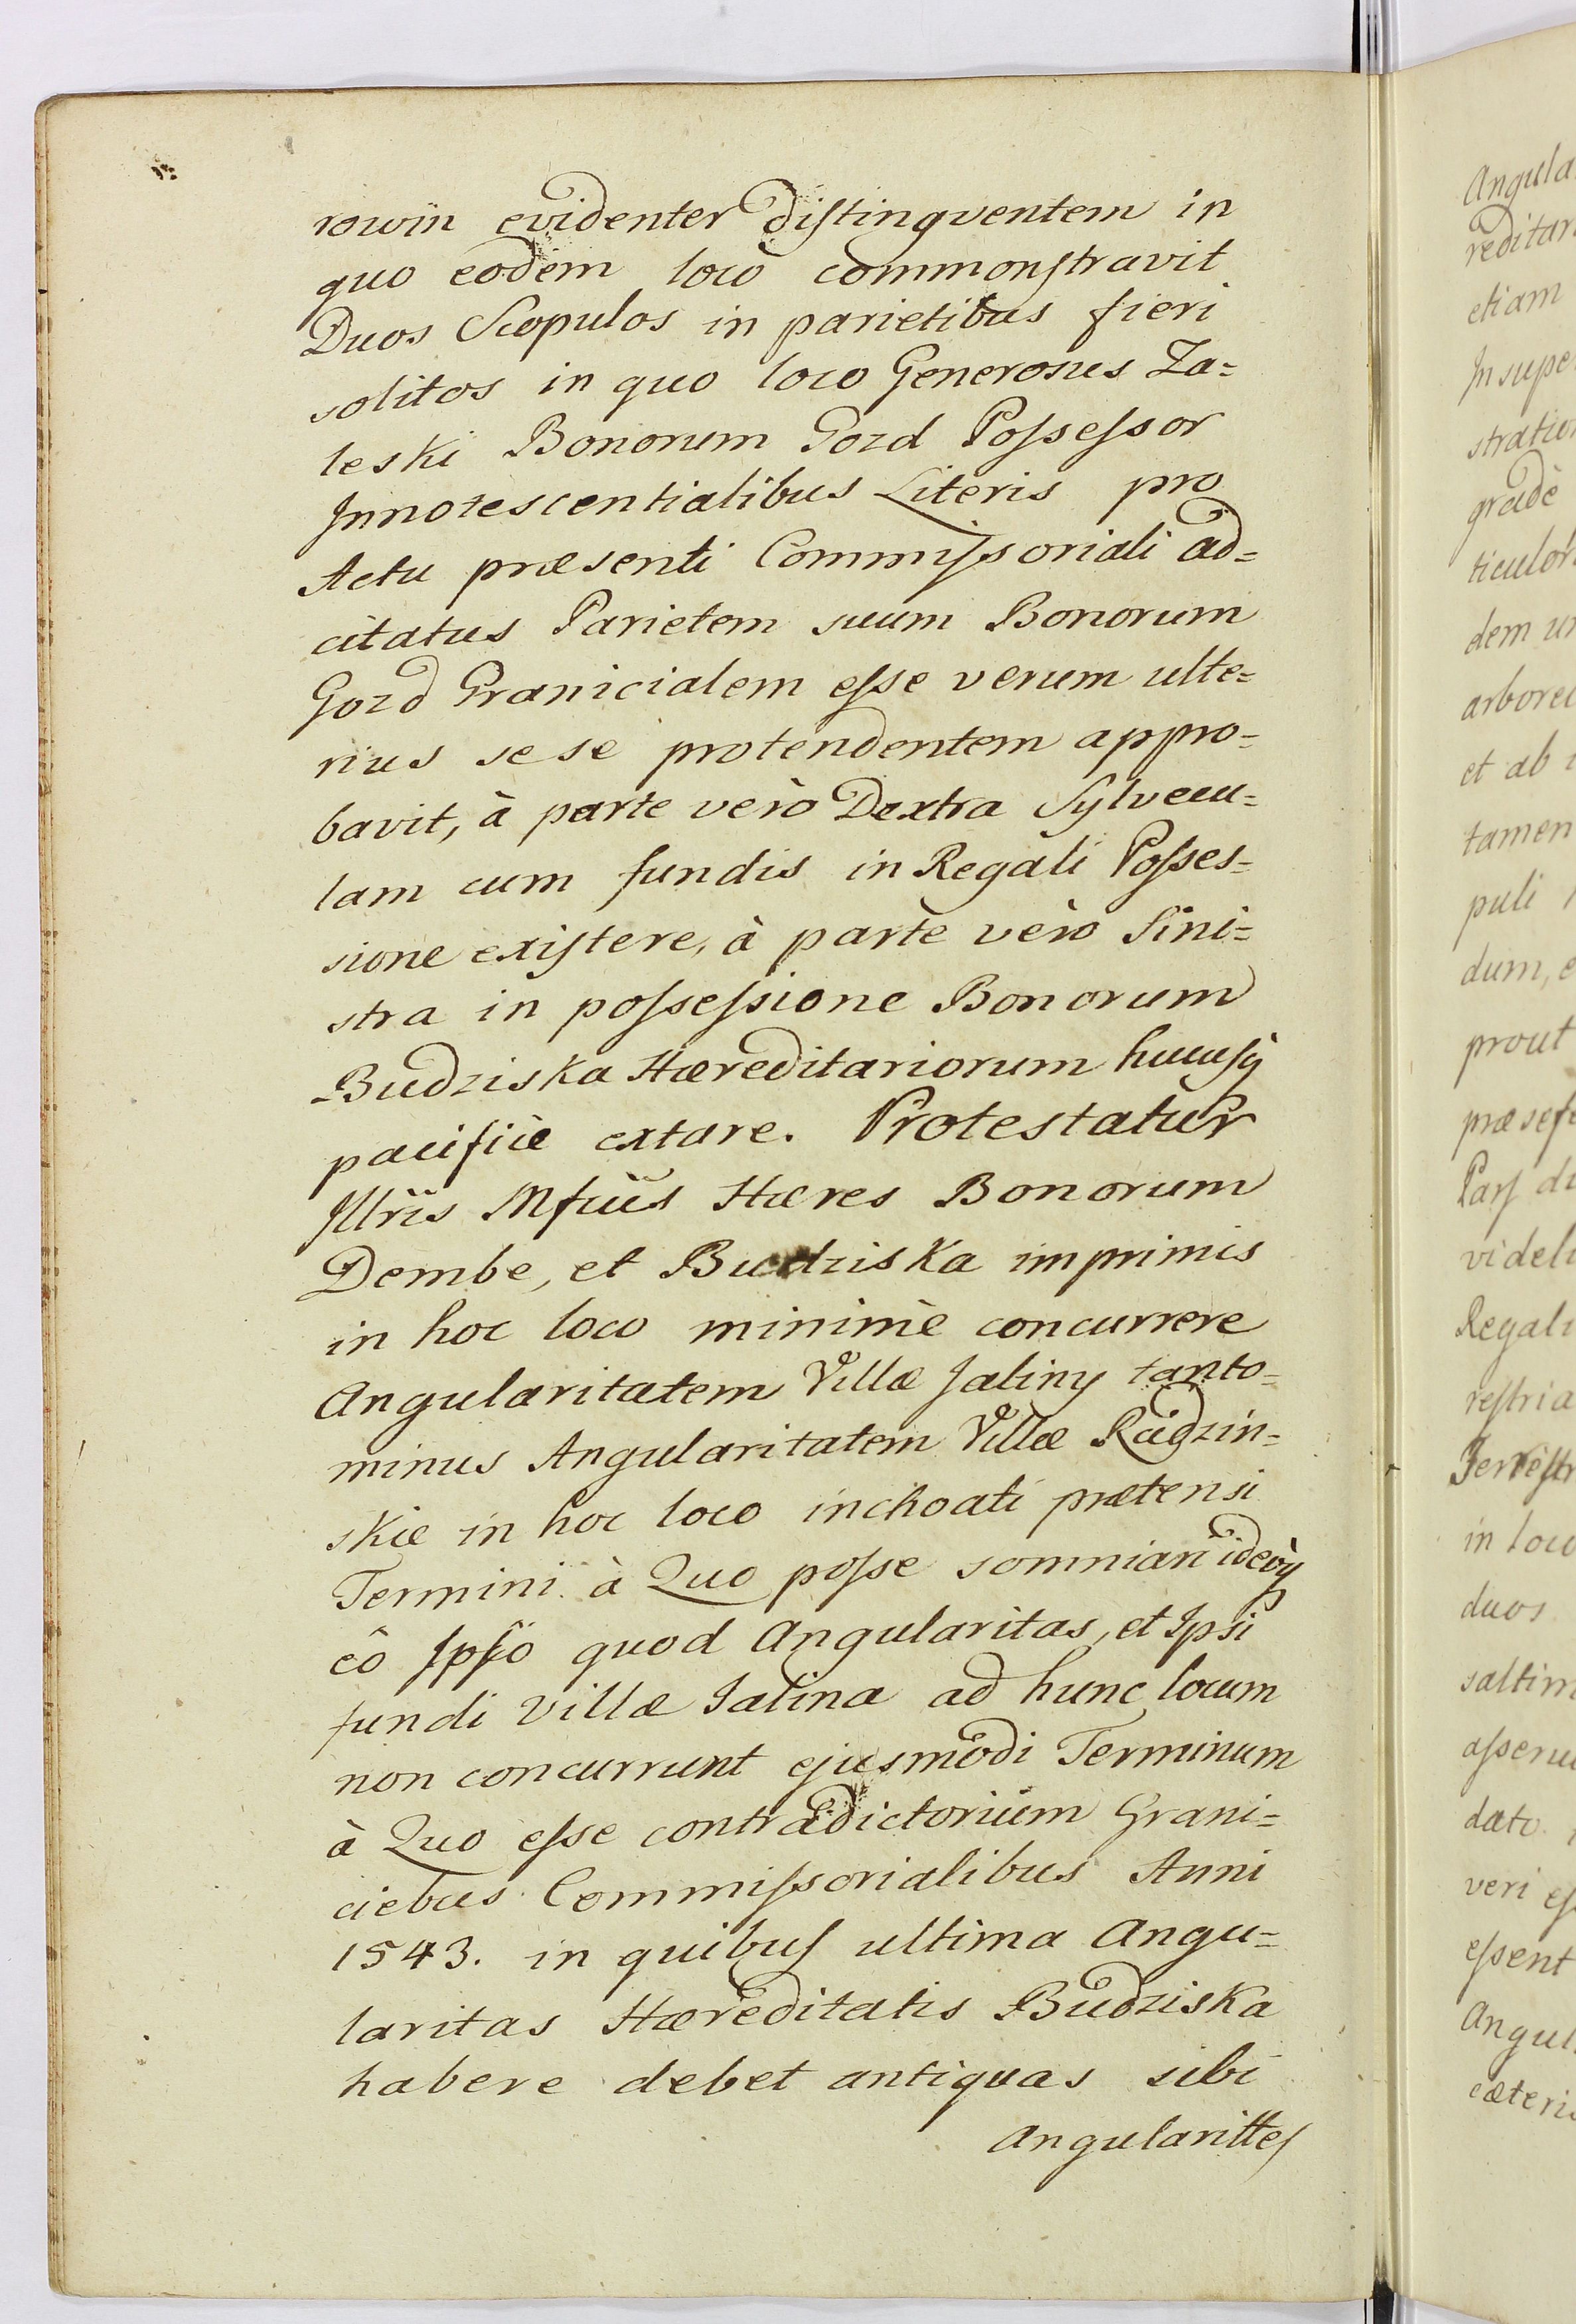 rowin evidenter distinqventem in
quo eodem locô commonstravit
Duos Scopulos in parietibus fieri
solitos in quo loco Generosus Za=
leski Bonorum Gozd Possessor
Innotescentialibus Literis pro
Actu præsenti Commissoriali ad=
citatus Parietem suum Bonorum
Gozd Granicialem esse verum ulte=
rius sese protendentem appro=
bavit, à parte verò Dextra Sylvecu=
lam cum fundis in Regali Posses=
sione existere, à parte verò Sini=
stra in possessione Bonorum
Budziska Hæreditariorum hucusq
pacificè extare. Protestatur
Illris Mfcus Hæres Bonorum
Dembe, et Budziska imprimis
in hoc loco minimè concurrere
Angularitatem Villæ Jaliny tanto=
minus Angularitatem Villæ Rudzin=
skie in hoc loco inchoati prætensi
Termini à Quo posse somniari ideòq
eô Ipsô quod Angularitas, et Ipsi
fundi Villæ Jalina ad hunc locum
non concurrunt ejusmodi Terminum
à Quo esse contradictorium Grani=
ciebus Commissorialibus Anni
1543. in quibus ultima Angu=
laritas Hæreditatis Budziska
habere debet antiquas sibi
Angularittes
Angula
reditar
etiam
Insupe
stratio
gradè
ticulor
dem un
arbore
et ab
tamen
puli
dum, e
prout
præsef
Pars di
videli
Regali
restria
Terrestr
in loco
duos
saltim
asseru
dato
veri es
essent
Angul
cæteris